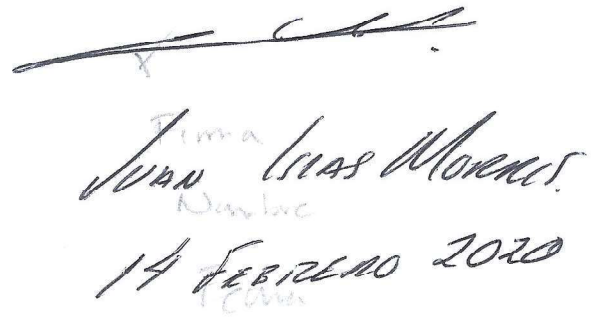 X
Firma
JUAN ISLAS MORALES.
Nombre
14 FEBRERO 2020
Fecha